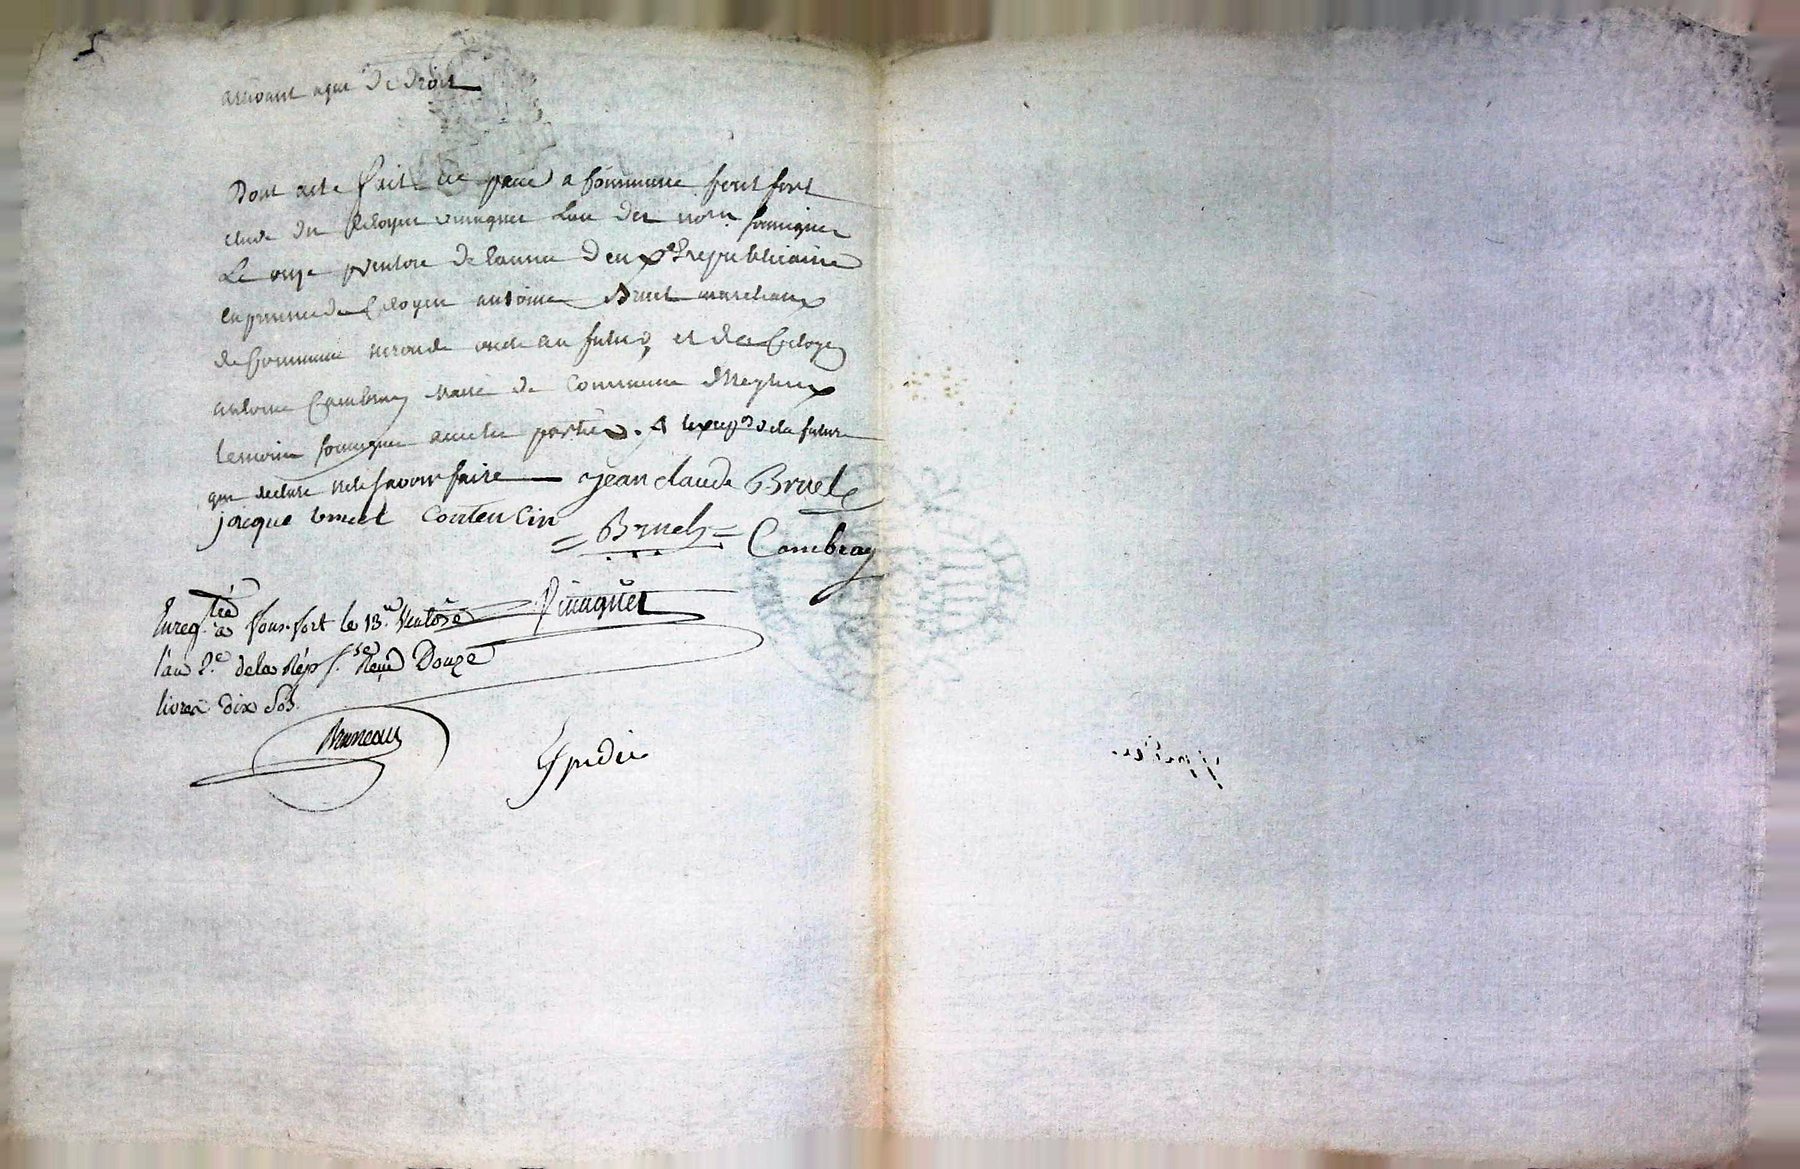 arrivant a que de droit
Dont acte fait et passé a Commune font fort
etude du citoyen vinagner l'un des not. soussignés
Le onze ventose de l'annee deuxe republicaine
en presence du Citoyen antoine Bruel marechaux
de Commune oncle au futur, et de Citoyen
antoine Cambray Maire de Commune
temoins soussignés avec les parties. A l'exep.on de la future
que declare ne le savoir faire jean claude Bruel
jacque vincet coutencin
Bruel Cambray
Vinagner
Enreg.tré à fons.fort le 13.e Ventose
l'an 2.e de la Rép f.se Reçu Douze
livres dix sols
Bruneau
Expédié